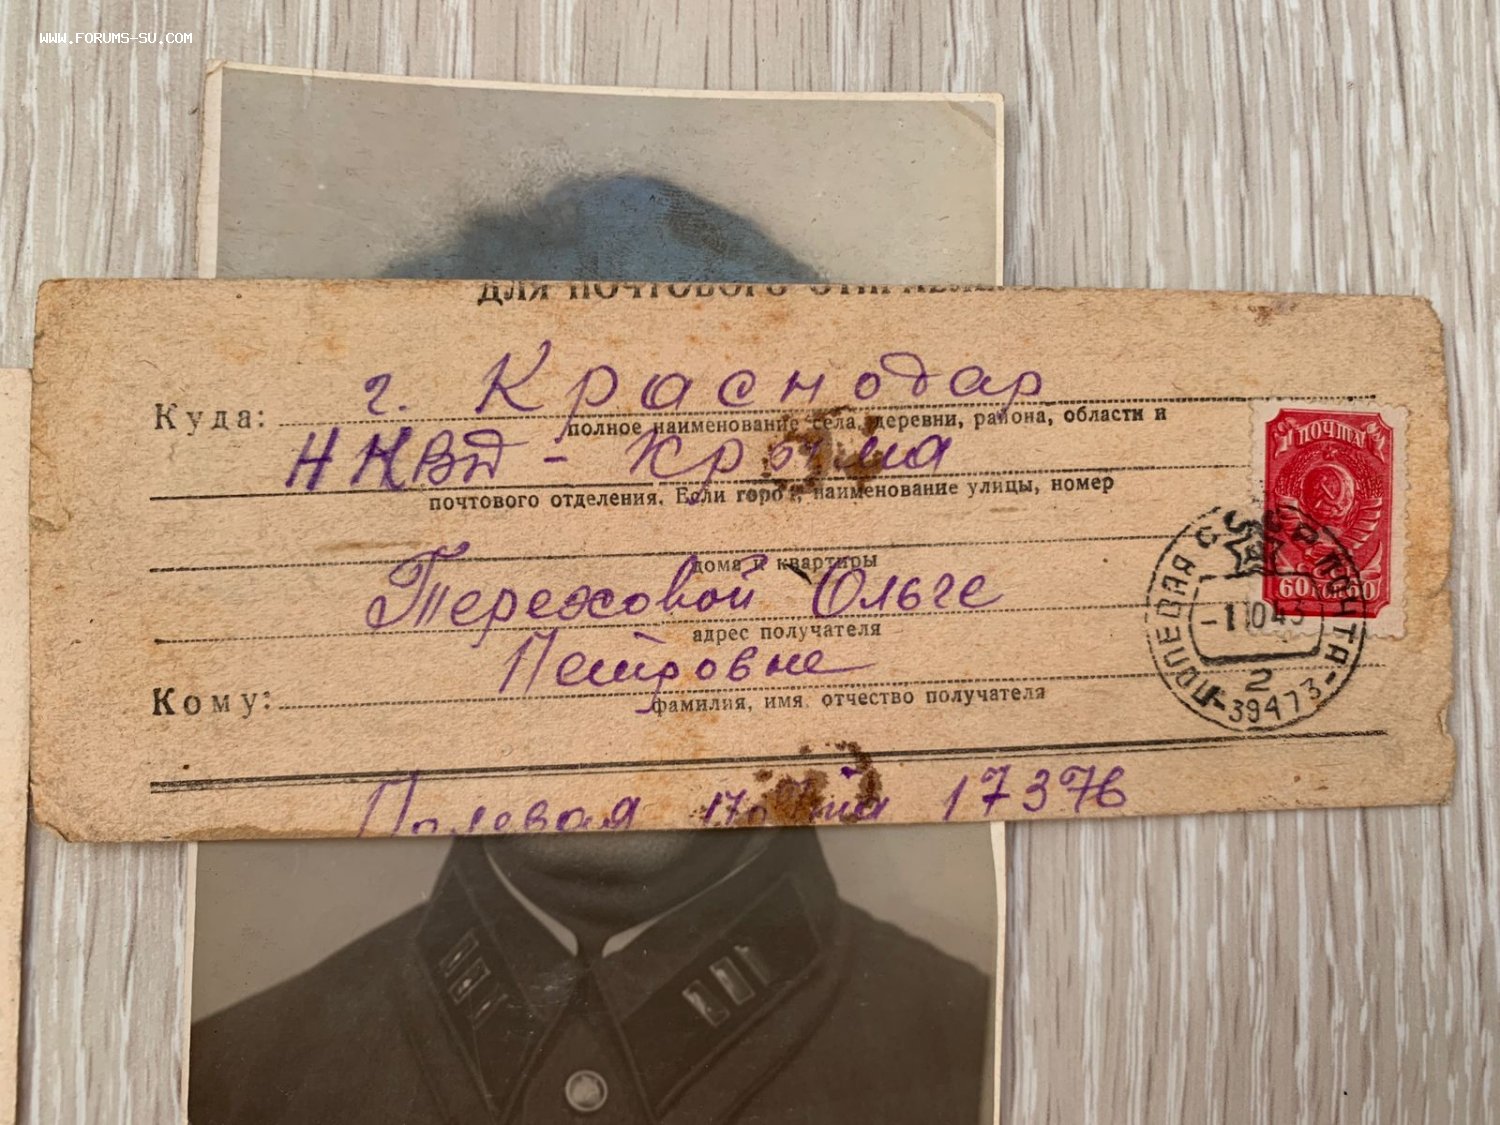 WWW.FORUMS-SU.COM
ДЛЯ ПОЧТОВОГО ОТПРАВЛЕНИЯ
Куда: г. Краснодар
полное наименование села, деревни, района, области и
НКВД - Крыма
почтового отделения. Если город, наименование улицы, номер
дома и квартиры
Тереховой Ольге
адрес получателя
Кому: Петровне
фамилия, имя, отчество получателя
Полевая почта 17376
ПОЧТА
60 КОП 60
ПОЛЕВАЯ ПОЧТА
СССР
-1 10 43
2
39473